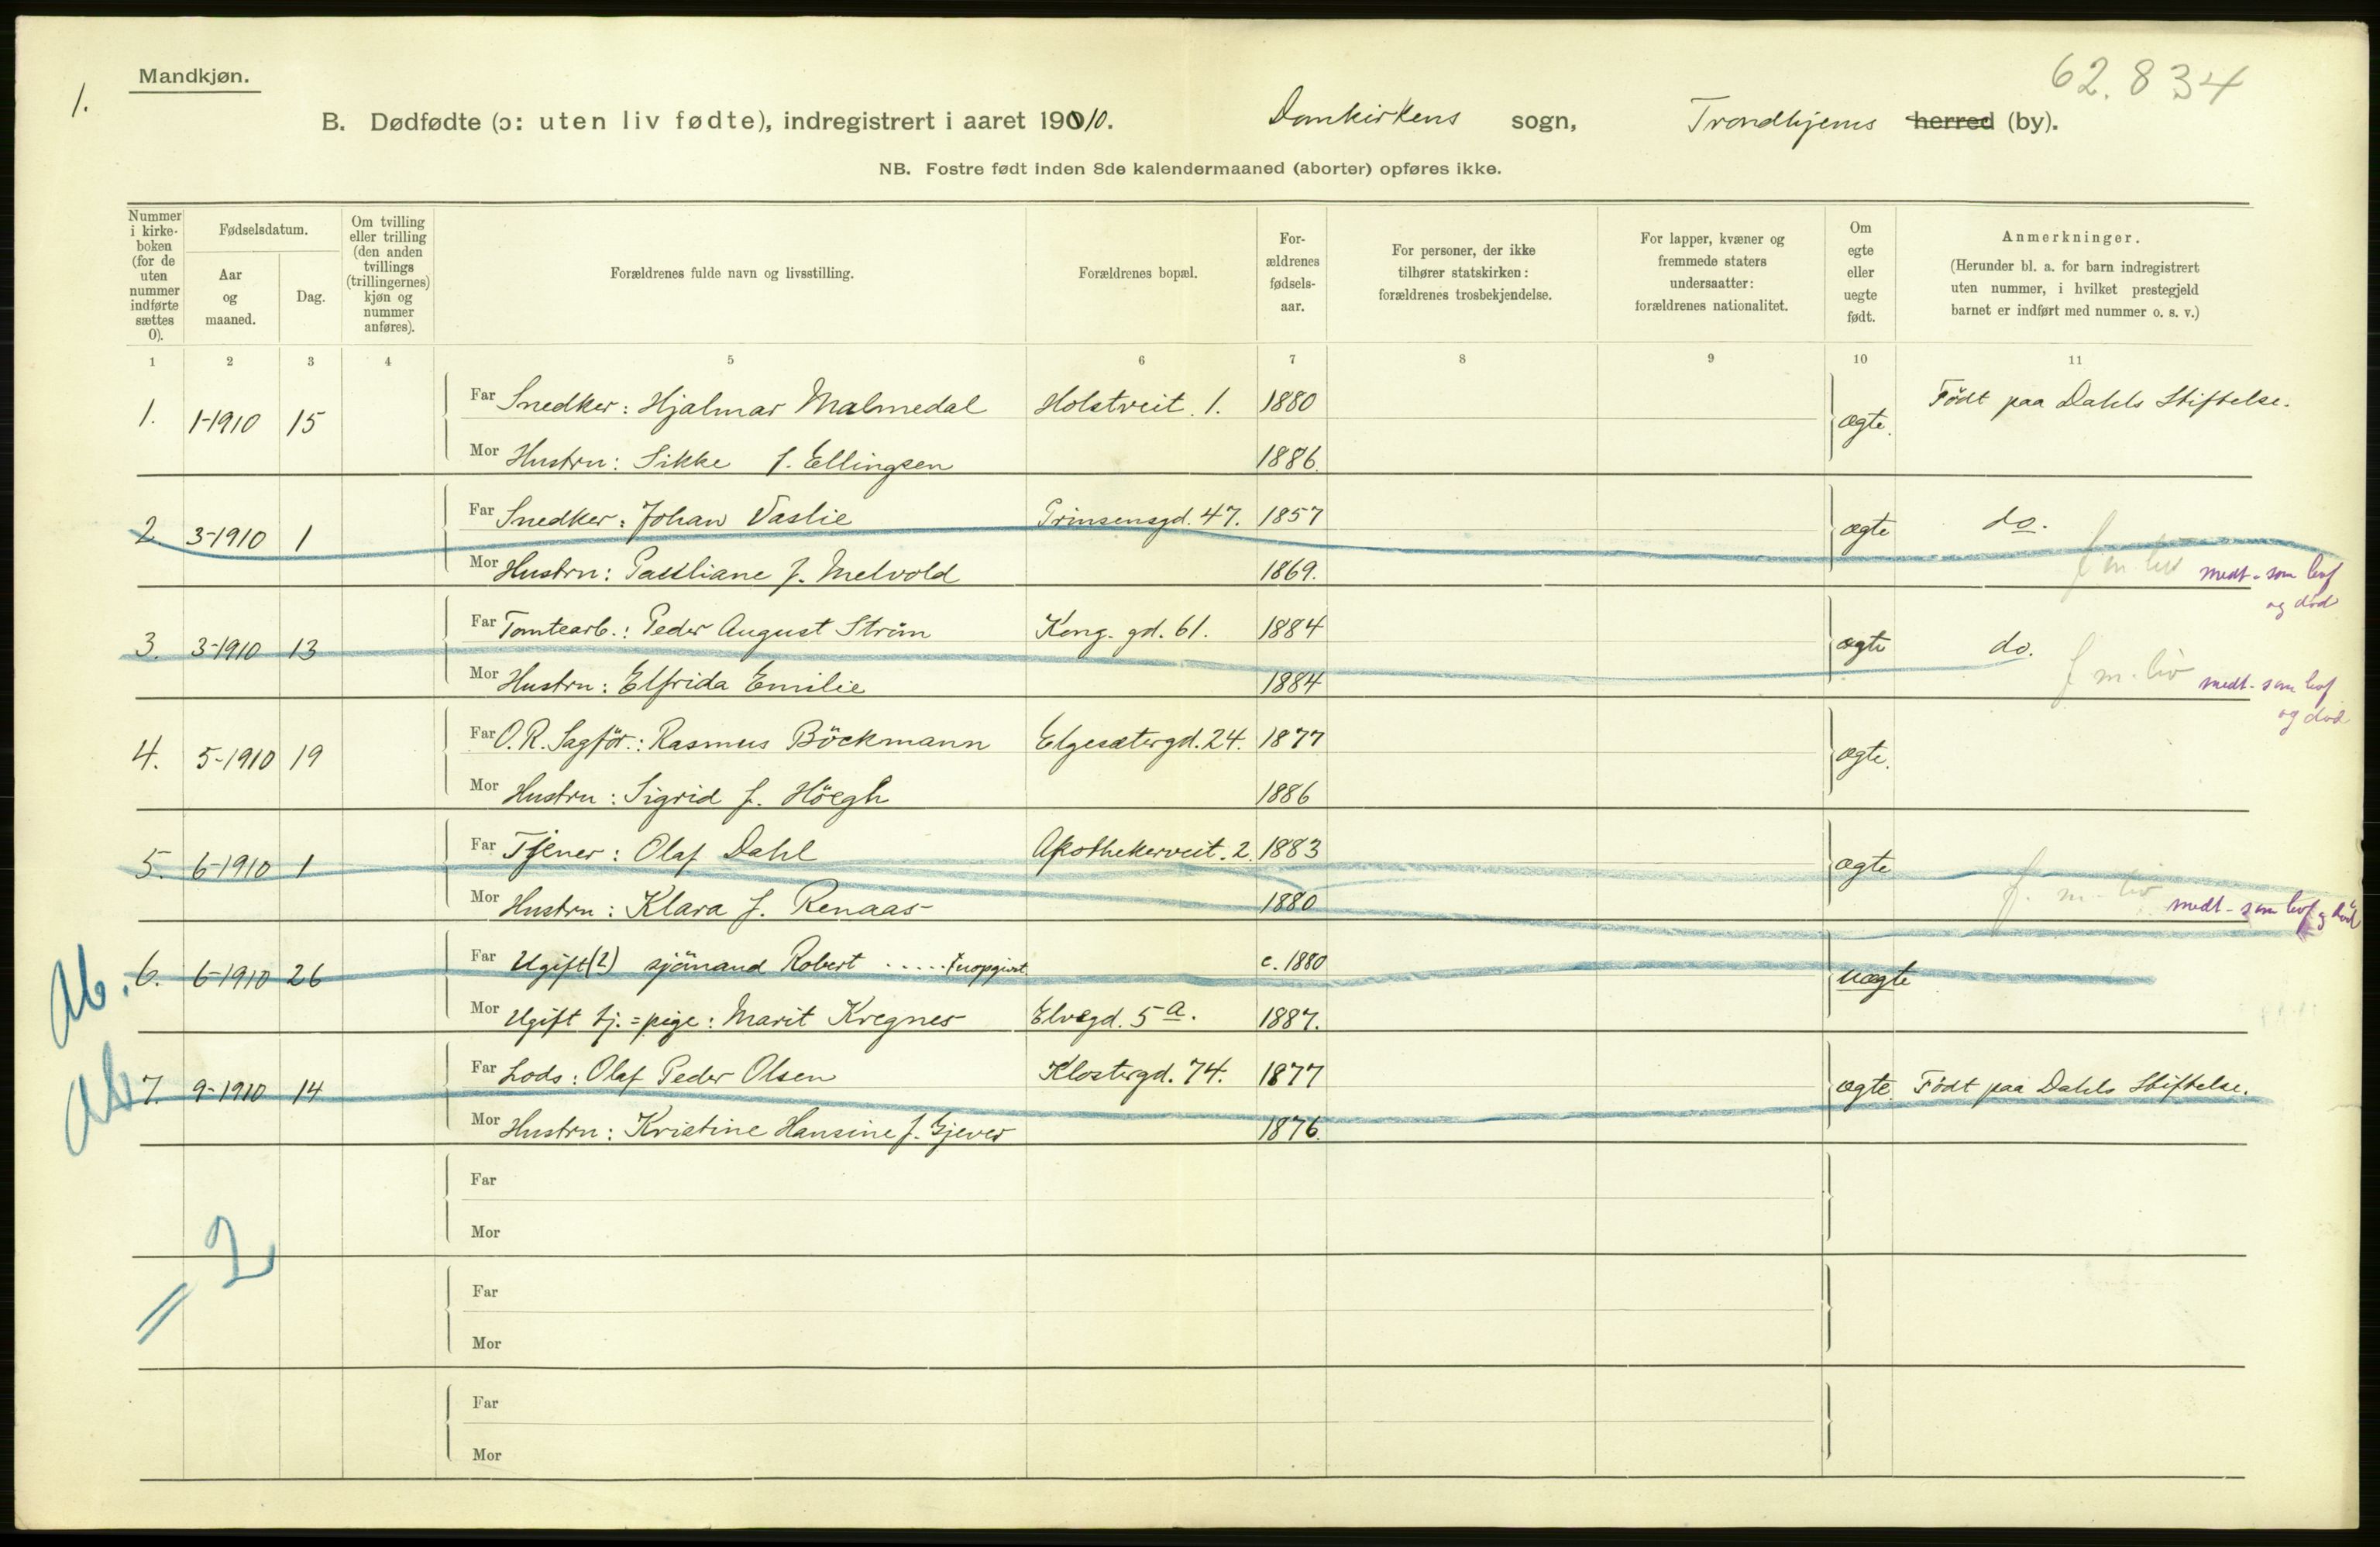 Mandkjøn.
1.
62.834
B. Dødfødte (ɔ: uten liv fødte), indregistrert i aaret 1910. Domkirkens sogn, Trondhjems herred (by).
NB. Fostre født inden 8de kalendermaaned (aborter) opføres ikke.
Nummer i kirke-boken (for de uten nummer indførte sættes 0).
Fødselsdatum.
Aar og maaned.
Dag.
Om tvilling eller trilling (den anden tvillings (trillingernes) kjøn og nummer anføres).
Forældrenes fulde navn og livsstilling.
Forældrenes bopæl.
For-ældrenes fødsels-aar.
For personer, der ikke tilhører statskirken: forældrenes trosbekjendelse.
For lapper, kvæner og fremmede staters undersaatter: forældrenes nationalitet.
Om egte eller uegte født.
Anmerkninger.
(Herunder bl. a. for barn indregistrert uten nummer, i hvilket prestegjeld barnet er indført med nummer o. s. v.)
1 2 3 4 5 6 7 8 9 10 11
1. 1-1910 15 Far Snedker: Hjalmar Malmedal Holstveit. 1. 1880 ægte. Födt paa Dahls Stiftelse.
Mor Hustru: Sikke f. Ellingsen 1886.
2. 3-1910 1 Far Snedker: Johan Vaslie Prinsensgd. 47. 1857 ægte do.
Mor Hustru: f. Melvold 1869. f m liv medt - som levf og död
3. 3-1910 13 Far Tomtearb.: Peder August Ström Kong. gd. 61. 1884 ægte do.
Mor Hustru: Elfrida Emilie 1884 f m. liv medt - som levf og död
4. 5-1910 19 Far O.R. Sagför.: Rasmus Böckmann Elgesætergd. 24. 1877 ægte.
Mor Hustru: Sigrid f. Höegh 1886
5. 6-1910 1 Far Tjener: Olaf Dahl Apothekerveit. 2. 1883 ægte
Mor Hustru: Klara f. Renaas 1880 f. m. liv medt - som levf og död
Ab. 6. 6-1910 26 Far Ugift(?) sjömand Robert ..... uopgivet c. 1880 uægte
Mor Ugift tj.=pige: Marit Kregnes Elvegd. 5 a. 1887.
Ab 7. 9-1910 14 Far Lods: Olaf Peder Olsen Klostergd. 74. 1877 ægte. Födt paa Dahls Stiftelse.
Mor Hustru: Kristine Hansine f. Gjever 1876.
Far
Mor
= 2
Far
Mor
Far
Mor